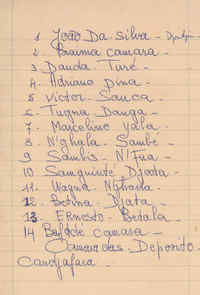 1 João Da Silva -
2. Braima camara -
3 Danda Turé -
4. Adriano pina -
5 Victor Sanca -
6 Tugna Danga -
7. Marcelino Yala -
8 N'ghala Sambé -
9 Sambis N'Fua -
10 Sanquinté Djata -
11. Wagna N'
12. Botma Djata -
13 Ernesto Betala -
14 camara
Camaradas - Deposito -
Candjafara -